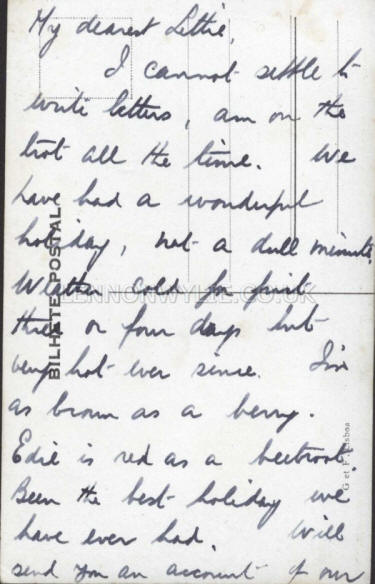 My dearest Lettie,
I cannot settle to
write letters, am on the
trot all the time. We
have had a wonderful
holiday, not a dull minute.
Weather cold for first
three or four days but
very hot ever since. I'm
as brown as a berry.
Edie is red as a beetroot.
Been the best holiday we
have ever had. Will
send you an account of our
BILHETE POSTAL
LENNONWYLIE.CO.UK
G et F, Lisboa